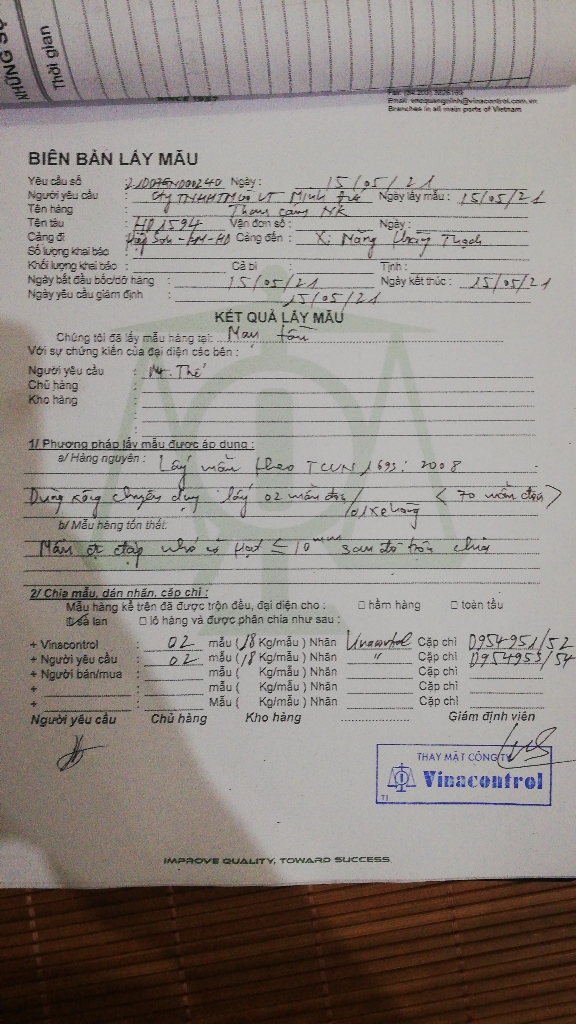 Thời gian
SINCE 1957
Email: vncquangninh@vinacontrol.com.vn
Branches in all main ports of Vietnam
BIÊN BẢN LẤY MẪU
Yêu cầu số Ngày : 15/05/21
Người yêu cầu : Cty TNHHTM VT Minh Ngày lấy mẫu : 15/05/21
Tên hàng : Than cám NK
Tên tàu : HD1594 Vận đơn số : Ngày :
Cảng đi : Cảng đến : Xi Măng Hoàng Thạch
Số lượng khai báo :
Khối lượng khai báo : Cả bì : Tịnh :
Ngày bắt đầu bốc/dỡ hàng : 15/05/21 Ngày kết thúc : 15/05/21
Ngày yêu cầu giám định : 15/05/21
KẾT QUẢ LẤY MẪU
Chúng tôi đã lấy mẫu hàng tại: Mạn tàu
Với sự chứng kiến của đại diện các bên :
Người yêu cầu : Mr. Thế
Chủ hàng :
Kho hàng :
1/ Phương pháp lấy mẫu được áp dụng :
a/ Hàng nguyên : Lấy mẫu theo TCVN 1693: 2008
Dùng xẻng chuyên dụng lấy 02 mẫu đơn/01 xe < 70 mẫu đơn >
b/ Mẫu hàng tổn thất:
Mẫu đập nhỏ cỡ hạt ≤ 10mm sau đó trộn chia
2/ Chia mẫu, dán nhãn, cặp chì :
Mẫu hàng kể trên đã được trộn đều, đại diện cho : □ hầm hàng □ toàn tàu
□ sà lan □ lô hàng và được phân chia như sau :
+ Vinacontrol : 02 mẫu ( 18 Kg/mẫu ) Nhãn Vinacontrol Cặp chì D954951/52
+ Người yêu cầu : 02 mẫu ( 18 Kg/mẫu ) Nhãn " Cặp chì D954953/54
+ Người bán/mua : mẫu ( Kg/mẫu ) Nhãn Cặp chì
+ : mẫu ( Kg/mẫu ) Nhãn Cặp chì
+ : Mẫu ( Kg/mẫu ) Nhãn Cặp chì
Người yêu cầu Chủ hàng Kho hàng Giám định viên
THAY MẶT CÔNG TY
Vinacontrol
IMPROVE QUALITY, TOWARD SUCCESS